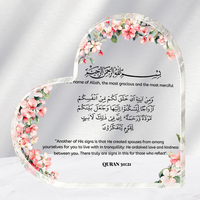 بِسْمِ اللَّهِ الرَّحْمَٰنِ الرَّحِيمِ
name of Allah, the most gracious and the most merciful.
وَمِنْ آيَاتِهِ أَنْ خَلَقَ لَكُم مِّنْ أَنفُسِكُمْ
أَزْوَاجًا لِّتَسْكُنُوا إِلَيْهَا وَجَعَلَ بَيْنَكُم
مَّوَدَّةً وَرَحْمَةً إِنَّ فِي ذَٰلِكَ لَآيَاتٍ
لِّقَوْمٍ يَتَفَكَّرُونَ
"Another of His signs is that He created spouses from among
yourselves for you to live with in tranquility: He ordained love and kindness
between you. There truly are signs in this for those who reflect".
QURAN 30:21